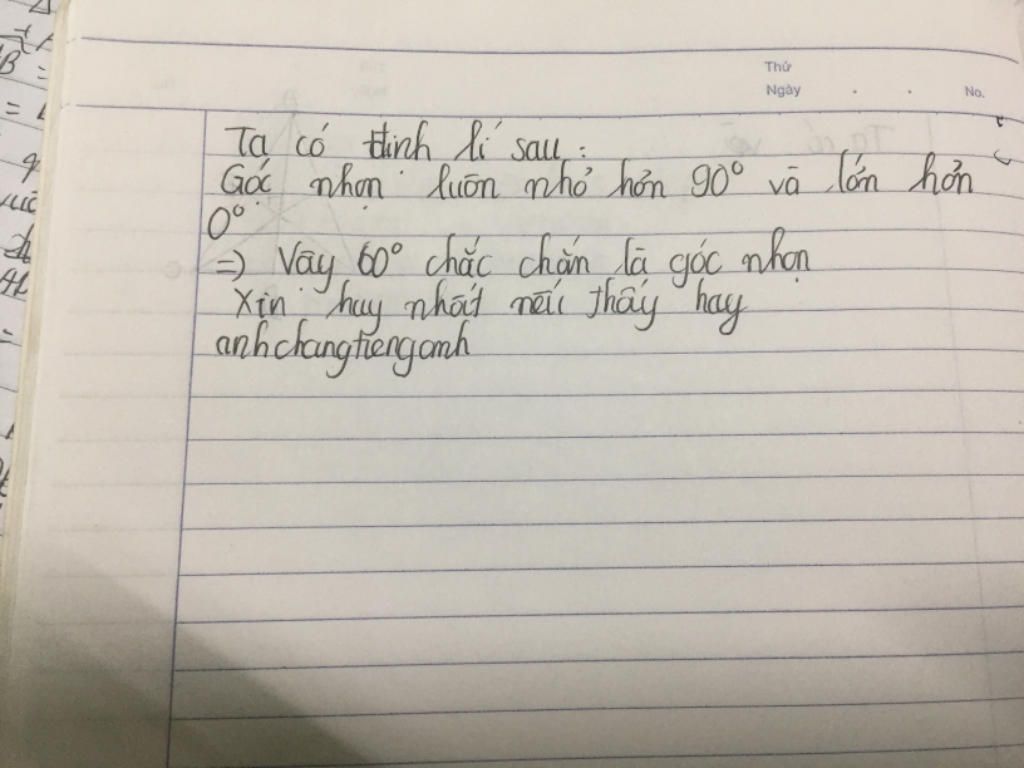 Thứ
Ngày . . No.
Ta có định lí sau:
Góc nhọn luôn nhỏ hơn 90° và lớn hơn
0°
=) Vậy 60° chắc chắn là góc nhọn
Xin hay nhất nếu thấy hay
anhchangtienganh